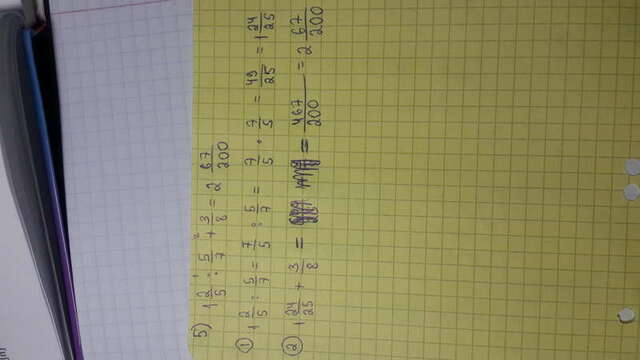 5) 1 2/5 : 5/7 + 3/8 = 2 67/200
① 1 2/5 : 5/7 = 7/5 : 5/7 = 7/5 · 7/5 = 49/25 = 1 24/25
② 1 24/25 + 3/8 = = 467/200 = 2 67/200